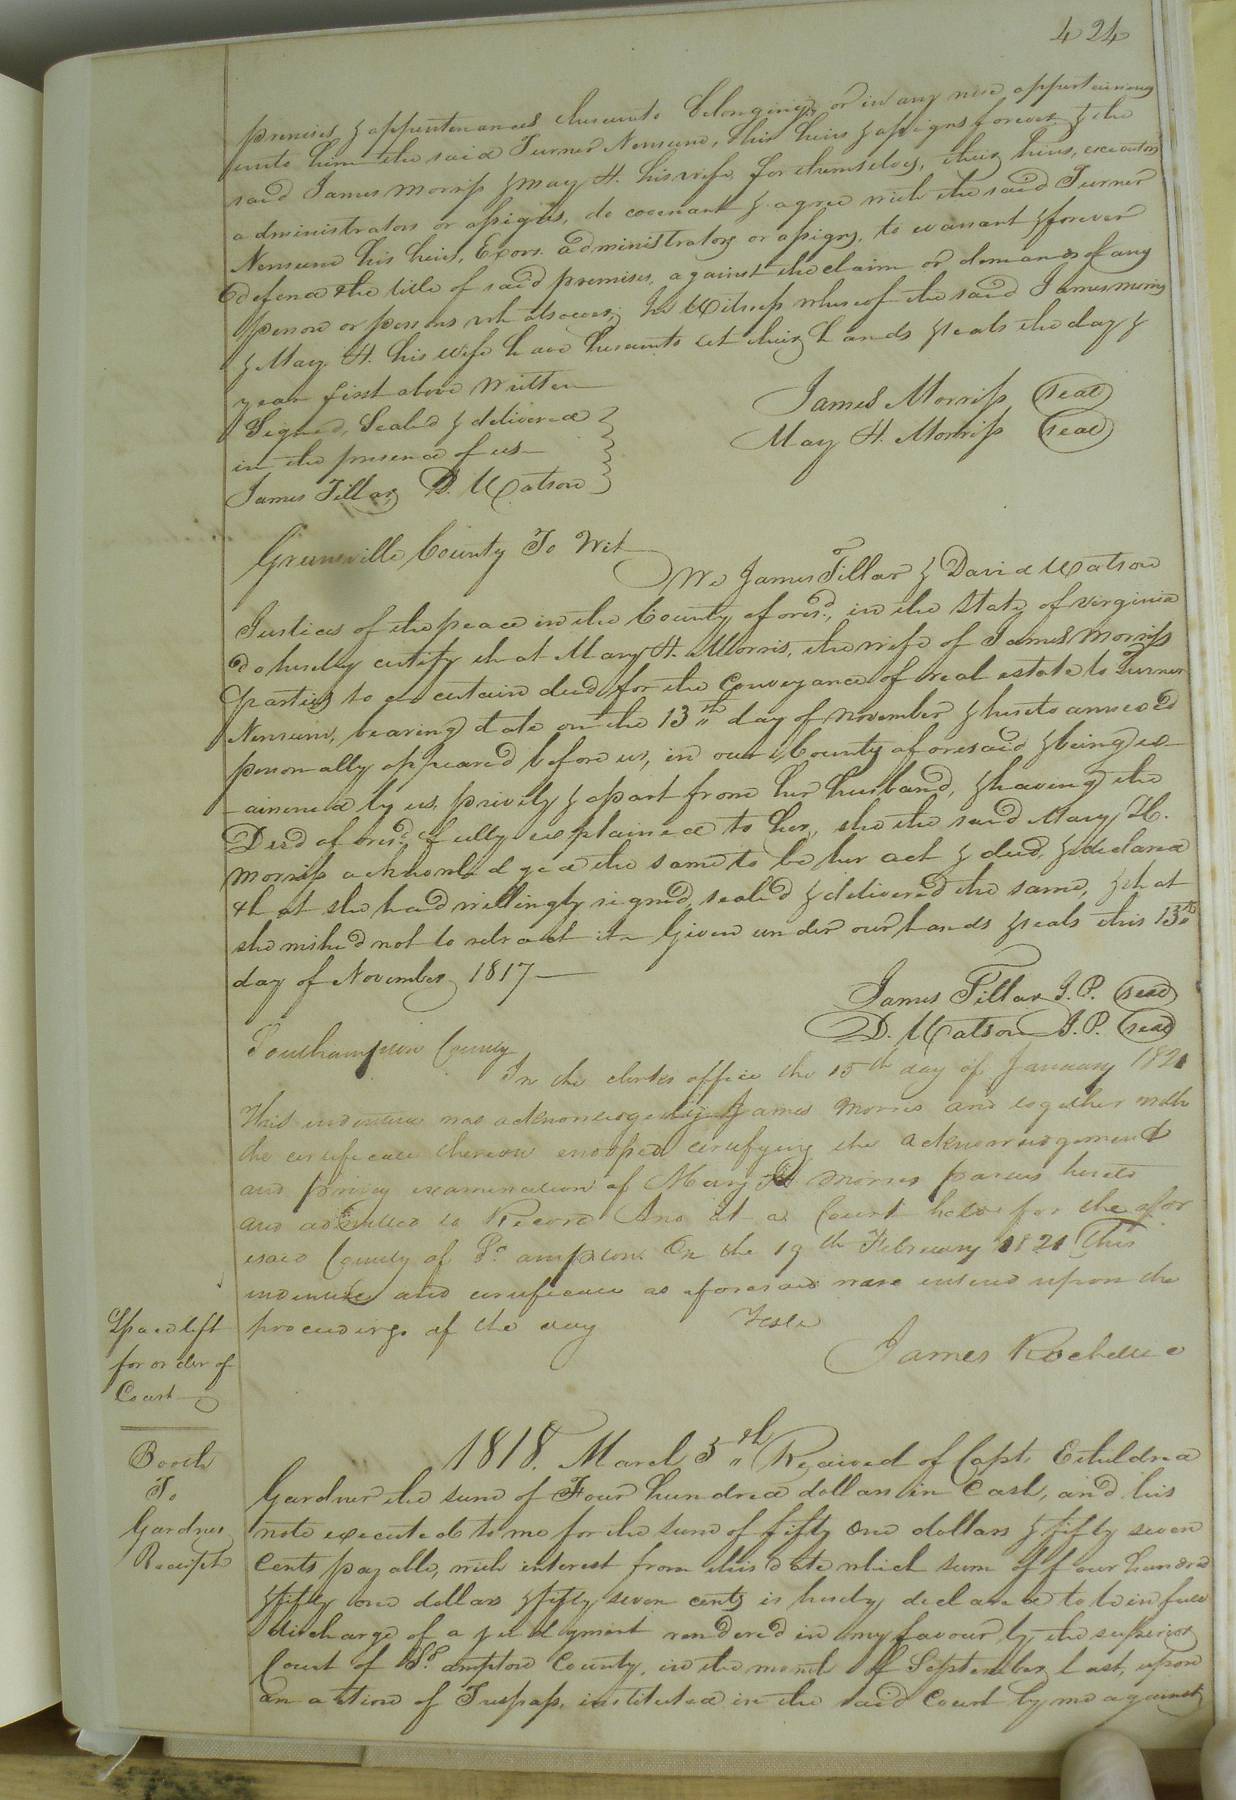 424
premises & appurtenances thereunto belonging, or in any wise appertaining
unto him the said Turner Newsum, this heirs & assigns forever & the
said James Morriss & May H. his wife for themselves, their heirs, executors
administrators or assigns, do covenant & agree with the said Turner
Newsum his heirs, Exors. administrators or assigns, to warrant & forever
defend the title of said premises, against the claim or demands of any
person or persons whatsoever; In Witness whereof the said James Morris
& May H. his wife have hereunto set their hands & seals the day &
year first above written
James Morriss (seal)
Signed, Sealed & delivered
May H. Morriss (seal)
in the presence of us
James Tillar, D. Watson
Greensville County To Wit
We James Tillar & David Watson
Justices of the peace in the County aforesd., in the State of Virginia
do hereby certify that Mary H. Morris, the wife of James Morriss
parties to a certain deed for the conveyance of real estate to Turner
Newsum, bearing date on the 13th day of November & hereto annexed
personally appeared before us, in our County aforesaid & being ex-
-amined by us, privily & apart from her husband, & having the
Deed aforesd. fully explained to her, she the said Mary H.
Morriss acknowledged the same to be her act & deed, & declared
that she had willingly signed, sealed & delivered the same, & that
she wished not to retract it Given under our hands & seals this 13th
day of November 1817
James Tillar J.P. (seal)
D. Watson J.P. (seal)
Southampton County
In the clerks office the 15th day of January 1821
This indenture was acknowledged by James Morris and together with
the certificate thereon endorsed certifying the acknowledgement
and privy examination of Mary H Morris parties hereto
and admitted to Record And at a Court held for the afor
esaid County of So ampton On the 19th February 1821 This
indenture and certificate as aforesaid were entered upon the
proceedings of the day Teste
James Rochelle
Space left
for order of
Court
Booth
To
Gardner
Receipt
1818. March 5th Received of Capt. Etheldred
Gardner the sum of Four hundred dollars in Cash, and his
note executed to me for the sum of fifty one dollars & fifty seven
Cents payable, with interest from this date which sum of four hundred
& fifty one dollars & fifty seven cents is hereby declared to be in full
discharge of a judgment rendered in my favour by the superior
Court of So. ampton County, in the month of September last, upon
an action of Trespass, instituted in the said Court by me against